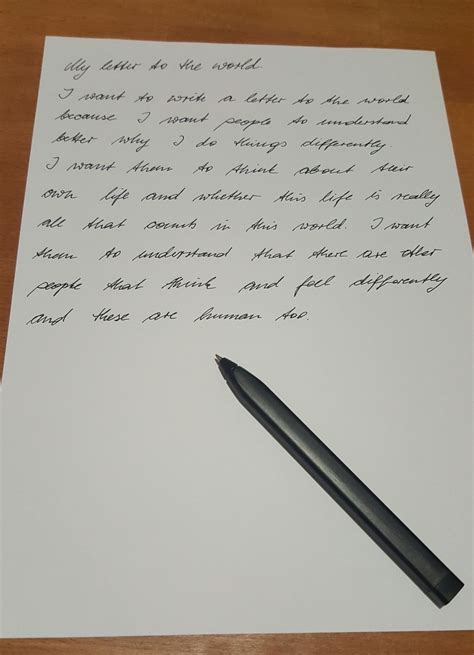 My letter to the world.
I want to write a letter to the world
because I want people to understand
better why I do things differently
I want them to think about their
own life and whether this life is really
all that counts in this world. I want
them to understand that there are other
people that think and feel differently
and these are human too.